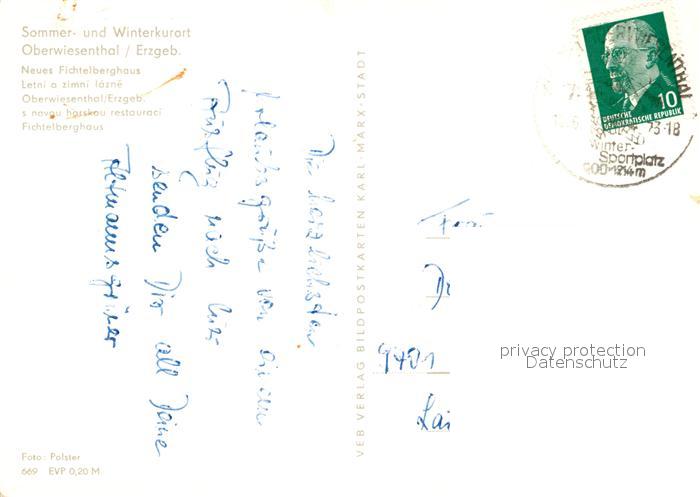 Sommer- und Winterkurort
Oberwiesenthal / Erzgeb.
Neues Fichtelberghaus
Letni a zimní lázně
Oberwiesenthal/Erzgeb.
s novou horskou restaurací
Fichtelberghaus
Die herzlichsten
Urlaubsgrüße von einem
Ausflug nach hier
senden Dir all Deine
VEB VERLAG BILDPOSTKARTEN KARL-MARX-STADT
10
DEUTSCHE
DEMOKRATISCHE REPUBLIK
-18
Winter-
Sportplatz
900-1214m
Frau
Dr
9401
privacy protection
Datenschutz
Foto: Polster
669 EVP 0,20 M